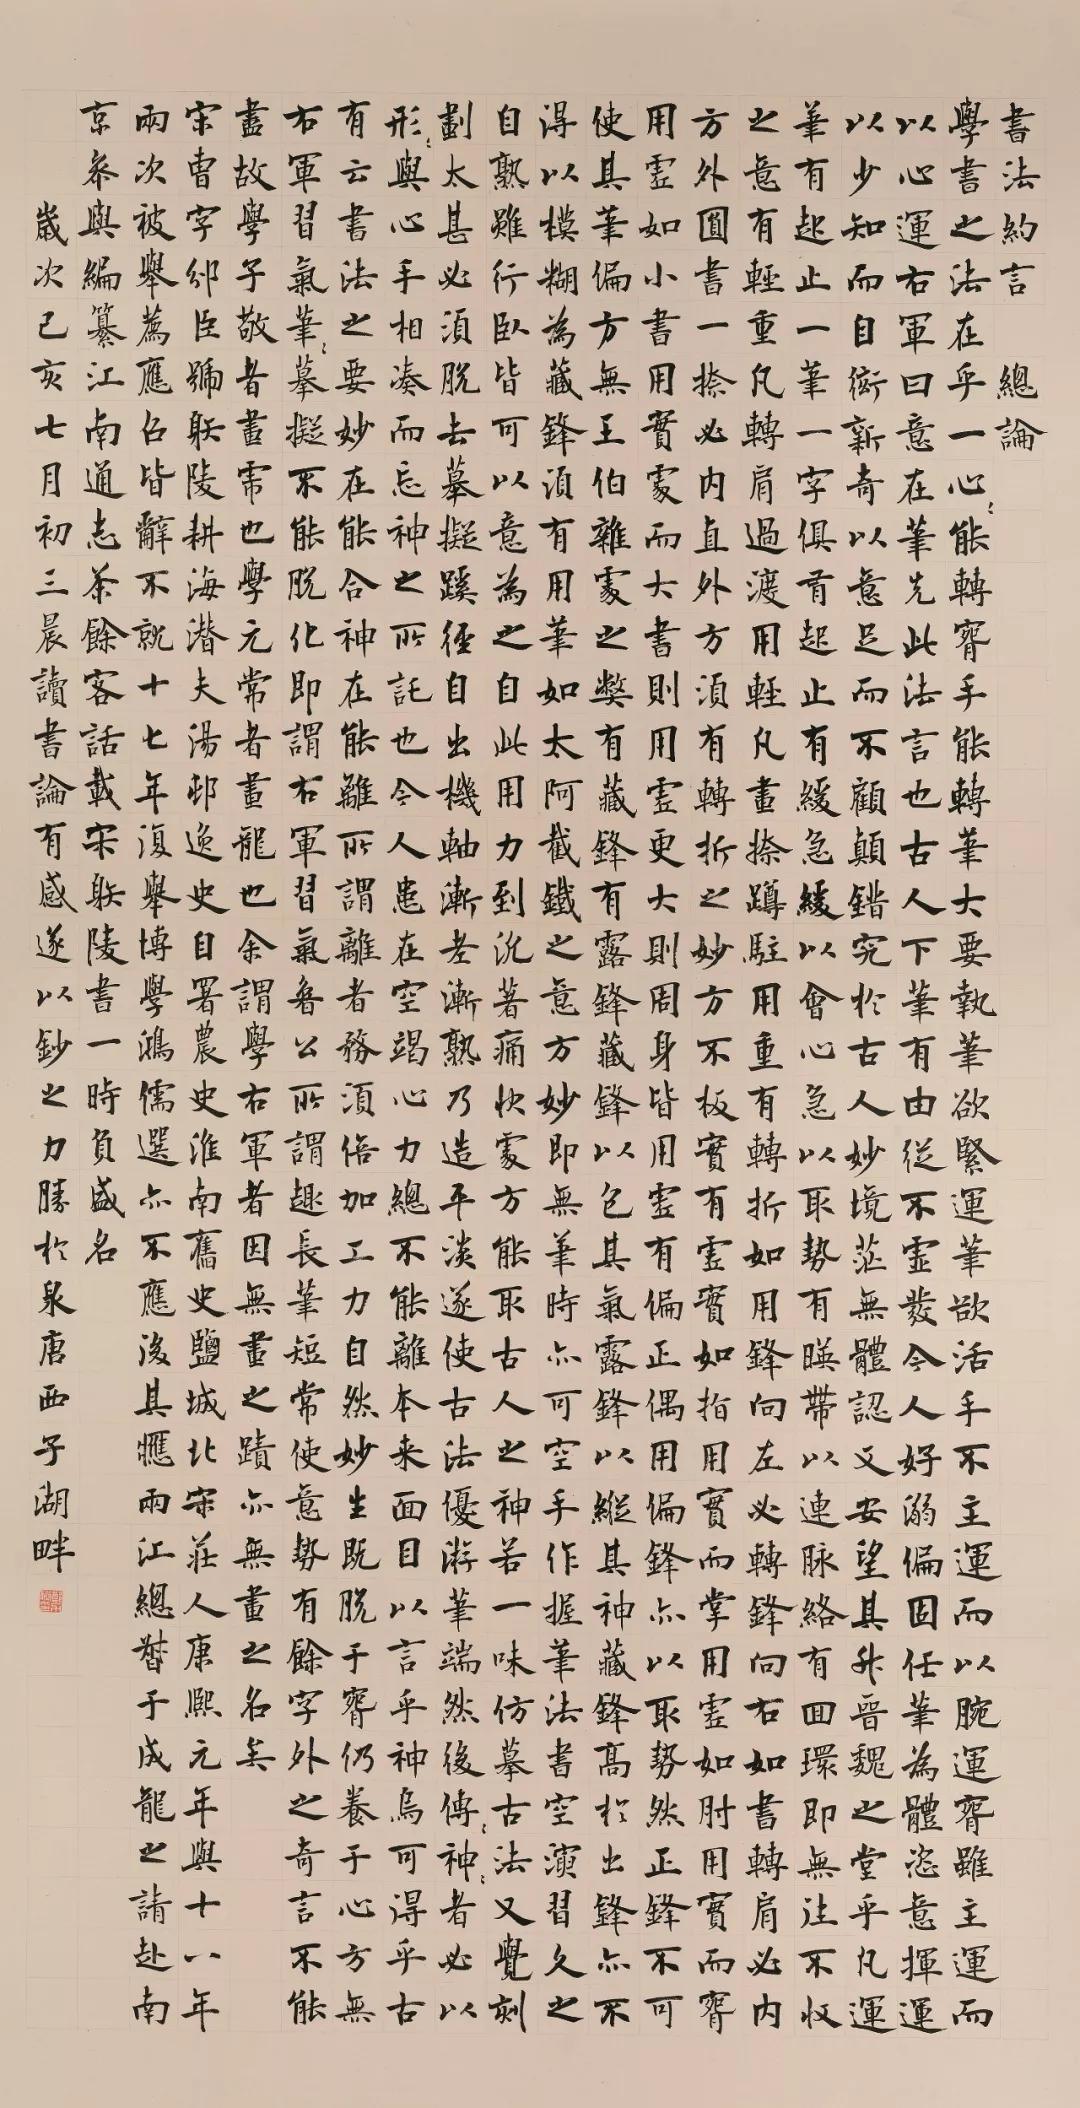 書法約言 總論
學書之法在乎一心〻能轉腕手能轉筆大要執筆欲緊運筆欲活手不主運而以腕運腕雖主運而
以心運右軍曰意在筆先此法言也古人下筆有由從不虛發今人好溺偏固任筆為體恣意揮運
以少知而自衒新奇以意足而不顧顛錯究於古人妙境茫無體認又安望其升晉魏之堂乎凡運
筆有起止一筆一字俱有起止有緩急緩以會心急以取勢有暎帶以連脉絡有回環即無往不收
之意有輕重凡轉肩過渡用輕凡畫捺蹲駐用重有轉折如用鋒向左必轉鋒向右如書轉肩必內
方外圓書一捺必內直外方須有轉折之妙方不板實有虛實如指用實而掌用虛如肘用實而腕
用虛如小書用實處而大書則用虛更大則周身皆用虛有偏正偶用偏鋒亦以取勢然正鋒不可
使其筆偏方無王伯雜處之弊有藏鋒有露鋒藏鋒以包其氣露鋒以縱其神藏鋒高於出鋒亦不
得以模糊為藏鋒須有用筆如太阿截鐵之意方妙即無筆時亦可空手作握筆法書空演習久之
自熟雖行臥皆可以意為之自此用力到沉著痛快處方能取古人之神若一味仿摹古法又覺刻
劃太甚必須脫去摹擬蹊徑自出機軸漸老漸熟乃造平淡遂使古法優游筆端然後傳〻神〻者必以
形〻與心手相湊而忘神之所託也今人患在空竭心力總不能離本来面目以言乎神烏可得乎古
有云書法之要妙在能合神在能離所謂離者務須倍加工力自然妙生既脫于腕仍養于心方無
右軍習氣筆〻摹擬不能脫化即謂右軍習氣魯公所謂趣長筆短常使意勢有餘字外之奇言不能
盡故學子敬者畫虎也學元常者畫龍也余謂學右軍者因無畫之蹟亦無畫之名矣
宋曹字邠臣號射陵耕海潛夫湯邨逸史自署農史淮南舊史鹽城北宋莊人康熙元年與十八年
兩次被舉薦應召皆辭不就十七年復舉博學鴻儒選亦不應後其應兩江總督于成龍之請赴南
京參與編纂江南通志茶餘客話載宋射陵書一時負盛名
歲次己亥七月初三晨讀書論有感遂以鈔之力勝於泉唐西子湖畔